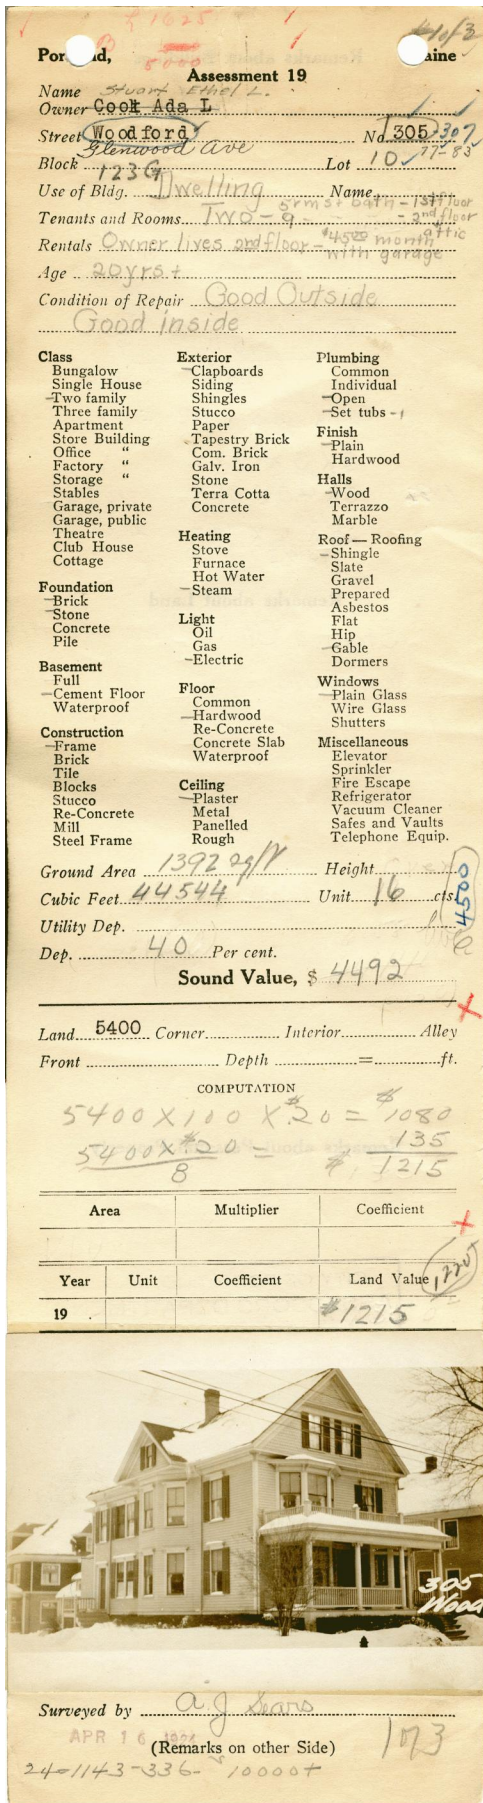 $1625
1 of 3
B
8000
Portland, Maine
Assessment 19
Name Stuart Ethel L.
Owner Cook Ada L
Street Woodford No 305 307
Glenwood Ave 77-83
Block 123 G Lot 10
Use of Bldg. Dwelling Name
Tenants and Rooms Two - 5 rms + bath - 1st floor
9 - 2nd floor attic
Rentals Owner lives 2nd floor - $45.00 month
with garage
Age 20 yrs +
Condition of Repair Good Outside
Good inside
Class
Bungalow
Single House
Two family
Three family
Apartment
Store Building
Office "
Factory "
Storage "
Stables
Garage, private
Garage, public
Theatre
Club House
Cottage
Foundation
Brick
Stone
Concrete
Pile
Basement
Full
Cement Floor
Waterproof
Construction
Frame
Brick
Tile
Blocks
Stucco
Re-Concrete
Mill
Steel Frame
Exterior
Clapboards
Siding
Shingles
Stucco
Paper
Tapestry Brick
Com. Brick
Galv. Iron
Stone
Terra Cotta
Concrete
Heating
Stove
Furnace
Hot Water
Steam
Light
Oil
Gas
Electric
Floor
Common
Hardwood
Re-Concrete
Concrete Slab
Waterproof
Ceiling
Plaster
Metal
Panelled
Rough
Plumbing
Common
Individual
Open
Set tubs - 1
Finish
Plain
Hardwood
Halls
Wood
Terrazzo
Marble
Roof — Roofing
Shingle
Slate
Gravel
Prepared
Asbestos
Flat
Hip
Gable
Dormers
Windows
Plain Glass
Wire Glass
Shutters
Miscellaneous
Elevator
Sprinkler
Fire Escape
Refrigerator
Vacuum Cleaner
Safes and Vaults
Telephone Equip.
Ground Area 1392 Height
Cubic Feet 44544 Unit 16 cts.
4500
Utility Dep.
Dep. 40 Per cent.
Sound Value, $ 4492
Land 5400 Corner Interior Alley
Front Depth = ft.
COMPUTATION
5400 X 100 X $.20 = $1080
5400 X $20 = 135
8 $ 1215
Area Multiplier Coefficient
Year Unit Coefficient Land Value
1220
19 . $1215
305
Wood
Surveyed by A. J. Sears
APR 16
(Remarks on other Side)
24-1143-336- 10000+